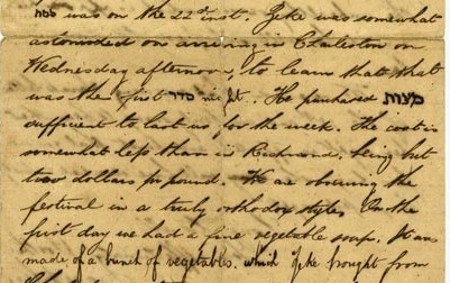 פסח was on the 22d inst. Zeke was somewhat
astonished on arriving in Charleston on
Wednesday afternoon, to learn that that
was the first סדר night. He purchased מצות
sufficient to last us for the week. The cost is
somewhat less than in Richmond, being but
two dollars pr pound. We are observing the
festival in a truly orthodox style. On the
first day we had a fine vegetable soup. It was
made of a bunch of vegetables which Zeke brought from